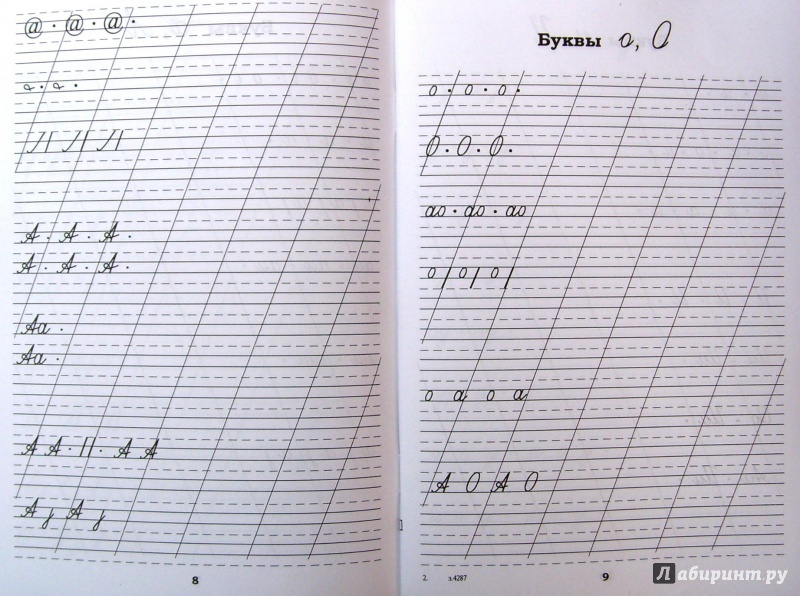 @ · @ · @ ·
А · А · А ·
А · А · А ·
Аа ·
Аа ·
А А · | | · А А
8
Буквы о, О
о · о · о ·
О · О · О ·
ао · ао · ао
о | о | о |
о а о а
А О А О
2. з.4287
9
Лабиринт.ру